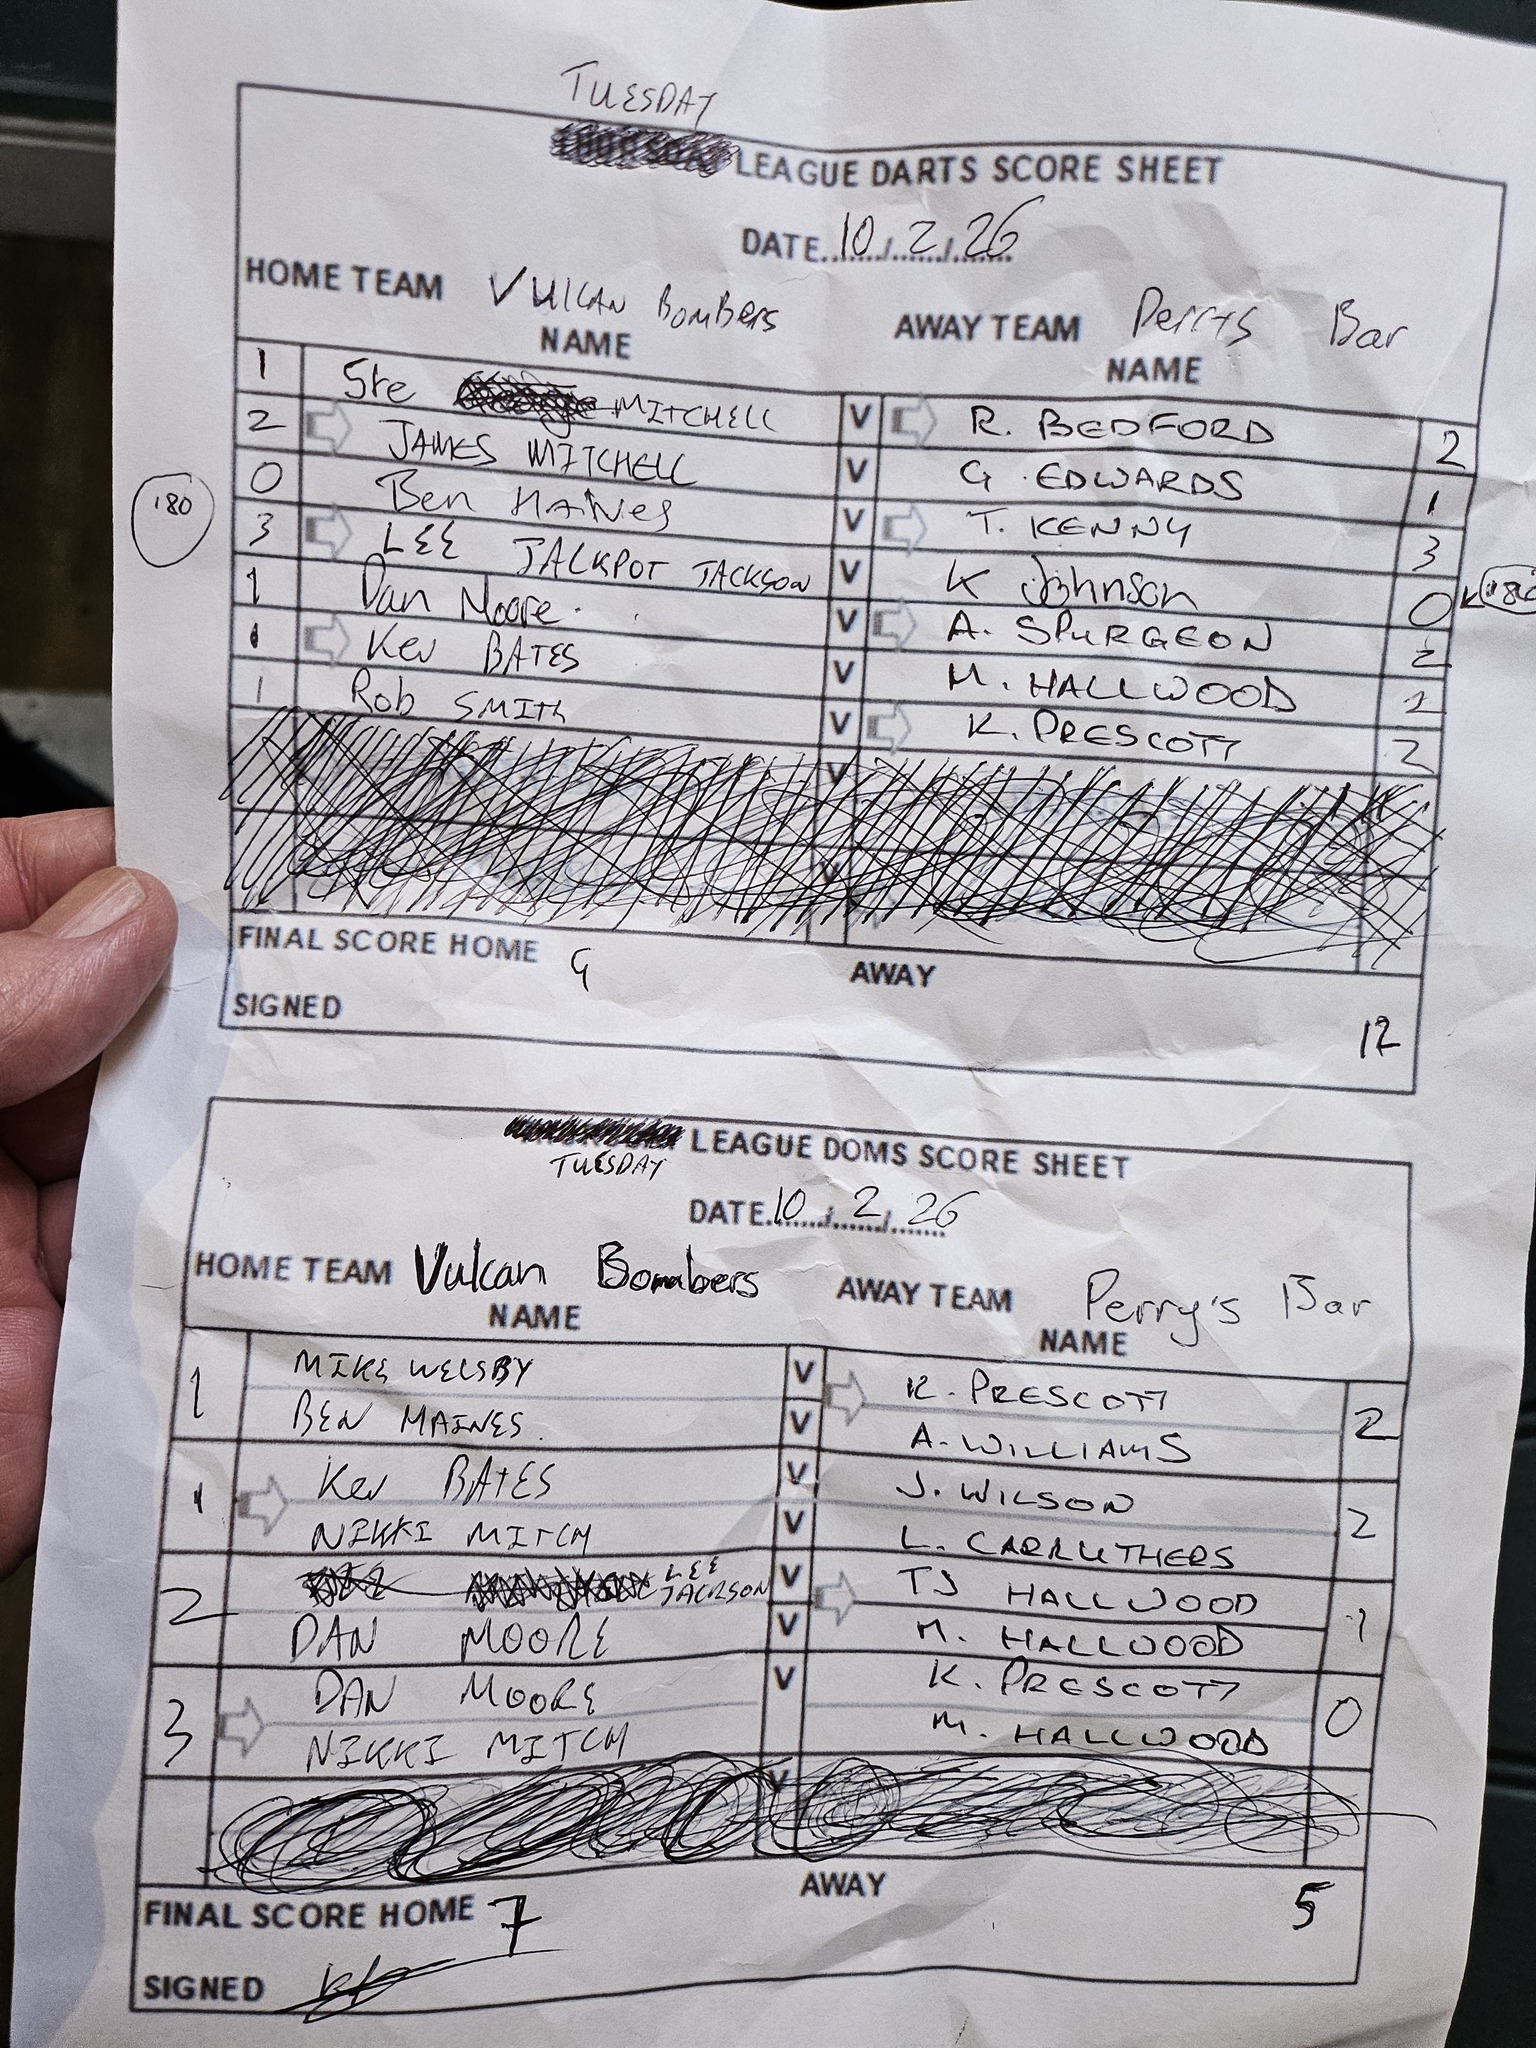 TUESDAY
LEAGUE DARTS SCORE SHEET
DATE 10/2/26
HOME TEAM Vulcan Bombers AWAY TEAM Perrys Bar
NAME NAME
1 Ste MITCHELL V R. BEDFORD 2
2 JAMES MITCHELL V G. EDWARDS 1
0 Ben HAiNes V T. KENNY 3
180 3 LEE JACKPOT JACKSON V K Johnson 0 180
1 Dan Moore V A. SPURGEON 2
1 Kev BATES V M. HALLWOOD 2
1 Rob SMITH V K. PRESCOTT 2
V
V
FINAL SCORE HOME 9 AWAY 12
SIGNED
LEAGUE DOMS SCORE SHEET
TUESDAY
DATE 10/2/26
HOME TEAM Vulcan Bombers AWAY TEAM Perry's Bar
NAME NAME
1 MIKE WELSBY V K. PRESCOTT 2
BEN HAINES V A. WILLIAMS
1 Kev BATES V J. WILSON 2
NIKKI MITCH V L. CARRUTHERS
2 LEE JACKSON V TJ HALLWOOD 1
DAN MOORE V M. HALLWOOD
3 DAN MOORE V K. PRESCOTT 0
NIKKI MITCH M. HALLWOOD
V
FINAL SCORE HOME 7 AWAY 5
SIGNED